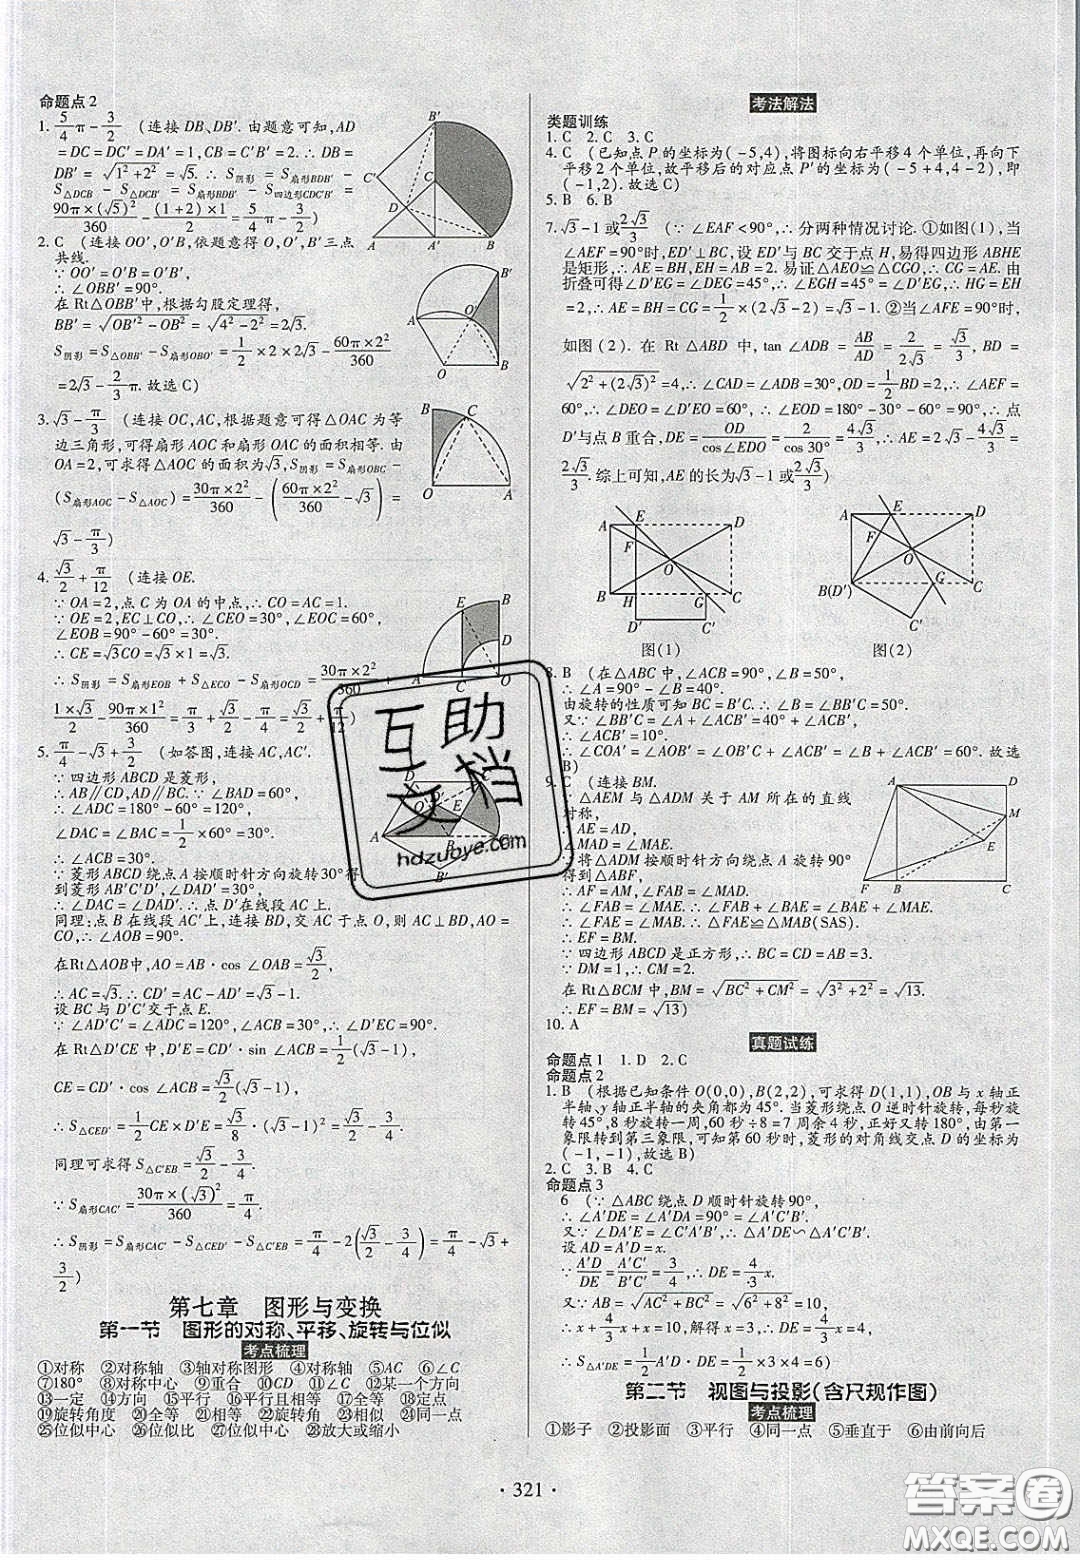 命题点2
1. 5/4π-3/2 (连接DB、DB′. 由题意可知,AD
=DC=DC′=DA′=1,CB=C′B′=2.∴DB=
DB′=√(1²+2²)=√5.∴S阴影=S扇形BDB′-
S△DCB-S△DCB′=S扇形BDB′-S四边形CDC′B′=
90π×(√5)²/360-(1+2)×1/2=5π/4-3/2)
2. C (连接OO′,O′B,依题意得O,O′,B′三点
共线.
∵OO′=O′B=O′B′.
∴∠OBB′=90°.
在Rt△OBB′中,根据勾股定理得,
BB′=√(OB′²-OB²)=√(4²-2²)=2√3.
S阴影=S△OBB′-S扇形OBO′=1/2×2×2√3-60π×2²/360
=2√3-2/3π.故选C)
3. √3-π/3 (连接OC,AC,根据题意可得△OAC为等
边三角形,可得扇形AOC和扇形OAC的面积相等.由
OA=2,可求得△AOC的面积为√3,S阴影=S扇形OBC-
(S扇形AOC-S△AOC)=30π×2²/360-(60π×2²/360-√3)=
√3-π/3)
4. √3/2+π/12 (连接OE.
∵OA=2,点C为OA的中点,∴CO=AC=1.
∵OE=2,EC⊥CO,∴∠CEO=30°,∠EOC=60°.
∠EOB=90°-60°=30°.
∴CE=√3CO=√3×1=√3.
∴S阴影=S扇形EOB+S△ECO-S扇形OCD=30π×2²/360+
1×√3/2-90π×1²/360=π/3+√3/2-π/4=√3/2+π/12)
5. π/4-√3+3/2 (如答图,连接AC,AC′.
∵四边形ABCD是菱形,
∴AB∥CD,AD∥BC.∵∠BAD=60°,
∴∠ADC=180°-60°=120°.
∠DAC=∠BAC=1/2×60°=30°,∠DCA=∠BCA
=30°.
∵菱形ABCD绕点A按顺时针方向旋转30°得
到菱形AB′C′D′,∴∠DAD′=30°.
∴∠DAC=∠DAD′.∴点D′在线段AC上.
同理:点B在线段AC′上,连接BD,交AC于点O,则AC⊥BD,AO=
CO,∴∠AOB=90°.
在Rt△AOB中,AO=AB·cos∠OAB=√3/2,
∴AC=√3.∴CD′=AC-AD′=√3-1.
设BC与D′C′交于点E.
∵∠AD′C′=∠ADC=120°,∠ACB=30°,∴∠D′EC=90°.
在Rt△D′CE中,D′E=CD′·sin∠ACB=1/2(√3-1).
CE=CD′·cos∠ACB=√3/2(√3-1).
∴S△CED′=1/2CE×D′E=√3/8·(√3-1)²=√3/2-3/4.
同理可求得S△C′EB=√3/2-3/4.
∵S扇形CAC′=30π×(√3)²/360=π/4.
∴S阴影=S扇形CAC′-S△CED′-S△C′EB=π/4-2(√3/2-3/4)=π/4-√3+
3/2)
第七章 图形与变换
第一节 图形的对称、平移、旋转与位似
考点梳理
①对称 ②对称轴 ③轴对称图形 ④对称轴 ⑤AC ⑥∠C
⑦180° ⑧对称中心 ⑨重合 ⑩CD ⑪∠C ⑫某一个方向
⑬一定 ⑭方向 ⑮平行 ⑯平行且相等 ⑰平行 ⑱全等
⑲旋转角度 ⑳全等 ㉑相等 ㉒相似 ㉓相似 ㉔同一点
㉕位似中心 ㉖位似比 ㉗位似中心 ㉘放大或缩小
考法解法
类题训练
1. C 2. C 3. C
4. C (已知点P的坐标为(-5,4),将图标向右平移4个单位,再向下
平移2个单位,故平移后的对应点P′的坐标为(-5+4,4-2),即
(-1,2).故选C)
5. B 6. B
7. √3-1或2√3/3 (∵∠EAF<90°,∴分两种情况讨论.①如图(1),当
∠AEF=90°时,ED′⊥BC,设ED′与BC交于点H,易得四边形ABHE
是矩形,∴AE=BH,EH=AB=2.易证△AEO≌△CGO,∴CG=AE.由
折叠可得∠D′EG=∠DEG=45°,∴∠EGH=45°=∠D′EG,∴HG=EH
=2,∴AE=BH=CG=1/2×(2√3-2)=√3-1.②当∠AFE=90°时,
如图(2).在Rt△ABD中,tan∠ADB=AB/AD=2/2√3=√3/3,BD=
√(2²+(2√3)²)=4,∴∠CAD=∠ADB=30°,OD=1/2BD=2,∴∠AEF=
60°,∴∠DEO=∠D′EO=60°,∴∠EOD=180°-30°-60°=90°,∴点
D′与点B重合,DE=OD/cos∠EDO=2/cos30°=4√3/3,∴AE=2√3-4√3/3=
2√3/3.综上可知,AE的长为√3-1或2√3/3)
图(1) 图(2)
8. B (在△ABC中,∠ACB=90°,∠B=50°,
∴∠A=90°-∠B=40°.
由旋转的性质可知BC=B′C.∴∠B=∠BB′C=50°.
又∵∠BB′C=∠A+∠ACB′=40°+∠ACB′,
∴∠ACB′=10°.
∴∠COA′=∠AOB′=∠OB′C+∠ACB′=∠B+∠ACB′=60°.故选
B)
9. C (连接BM.
∵△AEM与△ADM关于AM所在的直线
对称,
∴AE=AD,
∠MAD=∠MAE.
∵将△ADM按顺时针方向绕点A旋转90°
得到△ABF,
∴AF=AM,∠FAB=∠MAD.
∴∠FAB=∠MAE.∴∠FAB+∠BAE=∠BAE+∠MAE.
∴∠FAE=∠MAB.∴△FAE≌△MAB(SAS).
∴EF=BM.
∵四边形ABCD是正方形,∴BC=CD=AB=3.
∵DM=1,∴CM=2.
在Rt△BCM中,BM=√(BC²+CM²)=√(3²+2²)=√13.
∴EF=BM=√13)
10. A
真题试练
命题点1 1. D 2. C
命题点2
1. B (根据已知条件O(0,0),B(2,2),可求得D(1,1),OB与x轴正
半轴、y轴正半轴的夹角都为45°.当菱形绕点O逆时针旋转,每秒旋
转45°,8秒旋转一周,60秒÷8=7周余4秒,正好又转180°,由第一
象限转到第三象限,可知第60秒时,菱形的对角线交点D的坐标为
(-1,-1),故选B)
2. C 3. B 4. C
命题点3
6 (∵△ABC绕点D顺时针旋转90°,
∴∠A′DE=∠A′DA=90°=∠A′C′B′.
又∵∠DA′E=∠C′A′B′,∴△A′DE∽△A′C′B′.
设AD=A′D=x.
∵A′D/DE=A′C′/B′C′=3/4,∴DE=4/3x.
又∵AB=√(AC²+BC²)=√(6²+8²)=10.
∴x+4/3x+3=10.∴x=3,DE=4.
∴S△A′DE=1/2A′D·DE=1/2×3×4=6)
第二节 视图与投影(含尺规作图)
考点梳理
①影子 ②投影面 ③平行 ④同一点 ⑤垂直于 ⑥由前向后
· 321 ·
互助文档
hdzuoye.com
答案圈
MXQE.COM